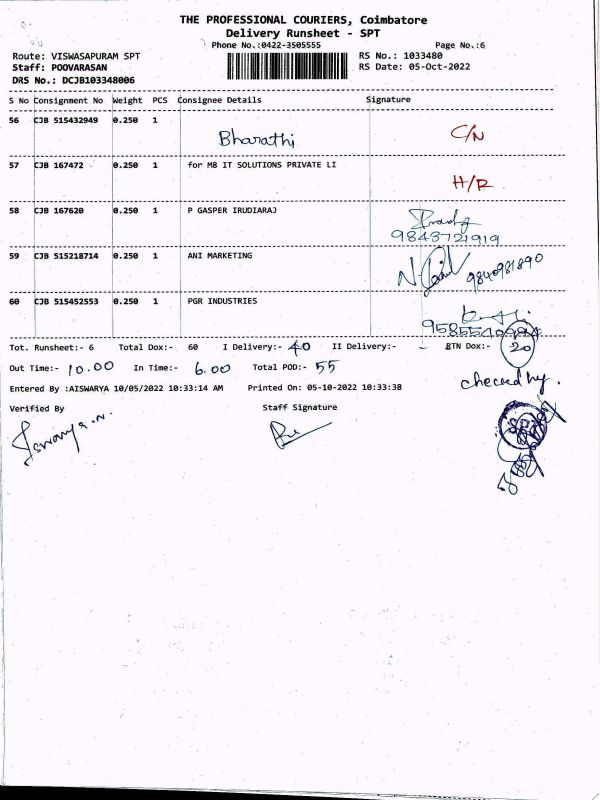 THE PROFESSIONAL COURIERS, Coimbatore
Delivery Runsheet - SPT
Phone No.:0422-3505555 Page No.:6
Route: VISWASAPURAM SPT RS No.: 1033480
Staff: POOVARASAN RS Date: 05-Oct-2022
DRS No.: DCJB103348006
S No Consignment No Weight PCS Consignee Details Signature
56 CJB 515432949 0.250 1 Bharathi C/N
57 CJB 167472 0.250 1 for M8 IT SOLUTIONS PRIVATE LI H/R
58 CJB 167620 0.250 1 P GASPER IRUDIARAJ
9843721919
59 CJB 515218714 0.250 1 ANI MARKETING 9840981890
60 CJB 515452553 0.250 1 PGR INDUSTRIES
Tot. Runsheet:- 6 Total Dox:- 60 I Delivery:- 40 II Delivery:- - BTN Dox:- 20
Out Time:- 10.00 In Time:- 6.00 Total POD:- 55
checked by.
Entered By :AISWARYA 10/05/2022 10:33:14 AM Printed On: 05-10-2022 10:33:38
Verified By Staff Signature